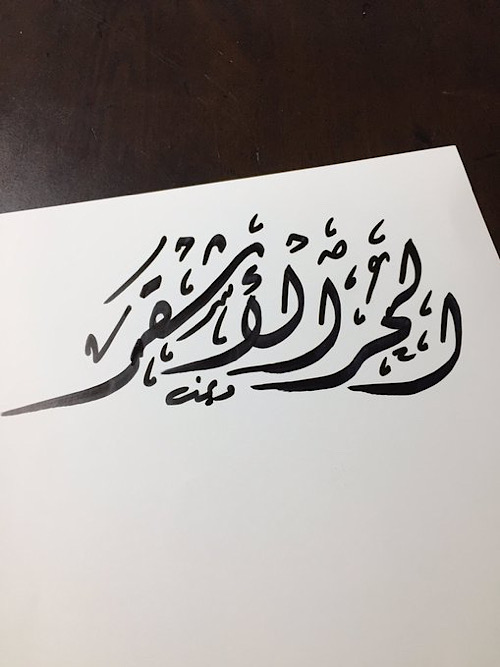 الحر الأشقر